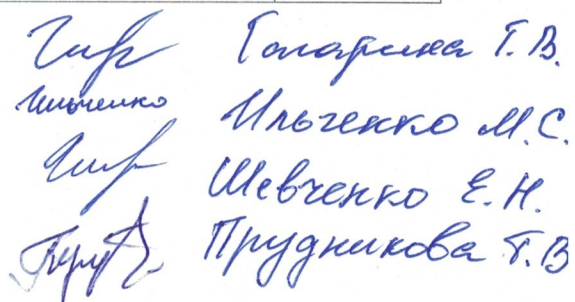 Т.В.
Ильченко Ильченко М.С.
Шевченко Е.Н.
Прудникова Т.В